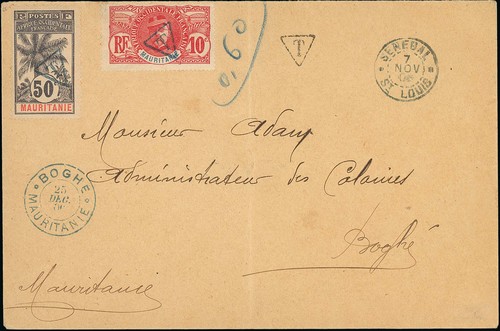 POSTES
AFRIQUE OCCIDENTALE
FRANÇAISE
50
MAURITANIE
RF
10
MAURITANIE
T
0,60
T
SÉNÉGAL
7
NOV
ST LOUIS
Monsieur Adam
Administrateur des Colonies
Boghé
BOGHE
25
DEC.
MAURITANIE
Mauritanie